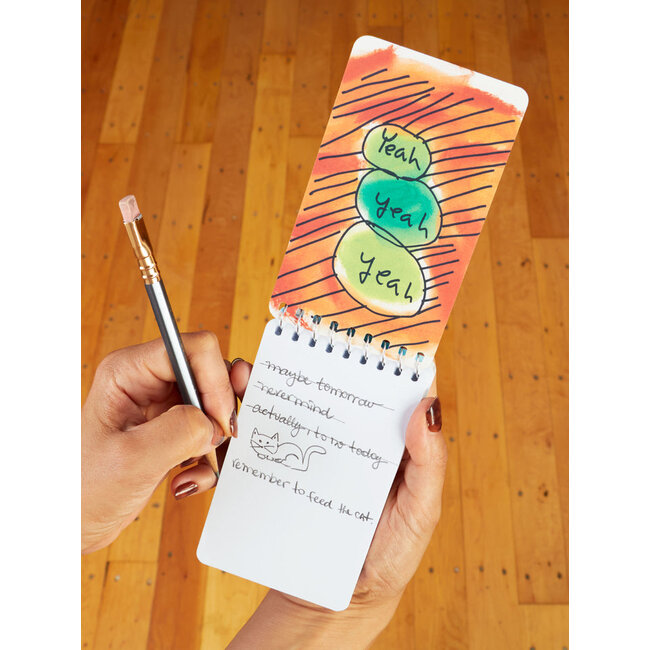 Yeah
yeah
yeah
maybe tomorrow
nevermind
actually, to no today
remember to feed the cat.